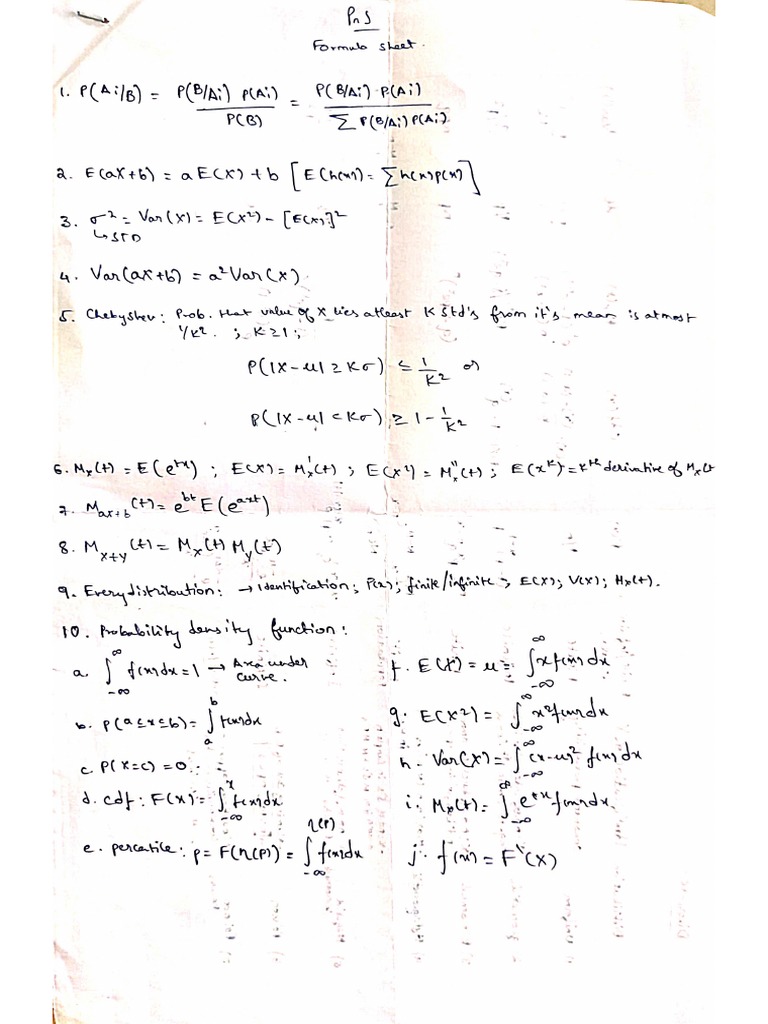 PnS
Formula sheet.
1. P(Ai/B) = P(B/Ai) P(Ai) / P(B) = P(B/Ai) · P(Ai) / ∑ P(B/Ai) P(Ai)
2. E(aX+b) = a E(X) + b [E(h(x)) = ∑h(x)p(x)]
3. σ² = Var(X) = E(X²) - [E(X)]²
↳ STD
4. Var(ax+b) = a² Var(X).
5. Chebyshev: Prob. that value of X lies atleast K Std's from it's mean is atmost
1/K². ; K≥1;
P(|X-μ| ≥ Kσ) ≤ 1/K² or
P(|X-μ| < Kσ) ≥ 1 - 1/K²
6. Mx(t) = E(e^tx) ; E(X) = Mx'(t) ; E(X²) = Mx''(t) ; E(x^k) = k^th derivative of Mx(t
7. M_ax+b (t) = e^bt E(e^axt)
8. M_x+y (t) = Mx(t) My(t)
9. Every distribution: → Identification; P(x); finite/infinite; E(X); V(X); Mx(t).
10. Probability density function:
a. ∫_-∞^∞ f(x)dx = 1 → Area under curve.
b. P(a≤x≤b) = ∫_a^b f(x)dx
c. P(X=c) = 0.
d. cdf: F(x) = ∫_-∞^x f(x)dx
e. percatile: p = F(η(p)) = ∫_-∞^η(p) f(x)dx
f. E(X) = μ = ∫_-∞^∞ x f(x) dx
g. E(X²) = ∫_-∞^∞ x² f(x)dx
h. Var(X) = ∫_-∞^∞ (x-μ)² f(x) dx
i. Mx(t) = ∫_-∞^∞ e^tx f(x)dx.
j. f(x) = F'(X)